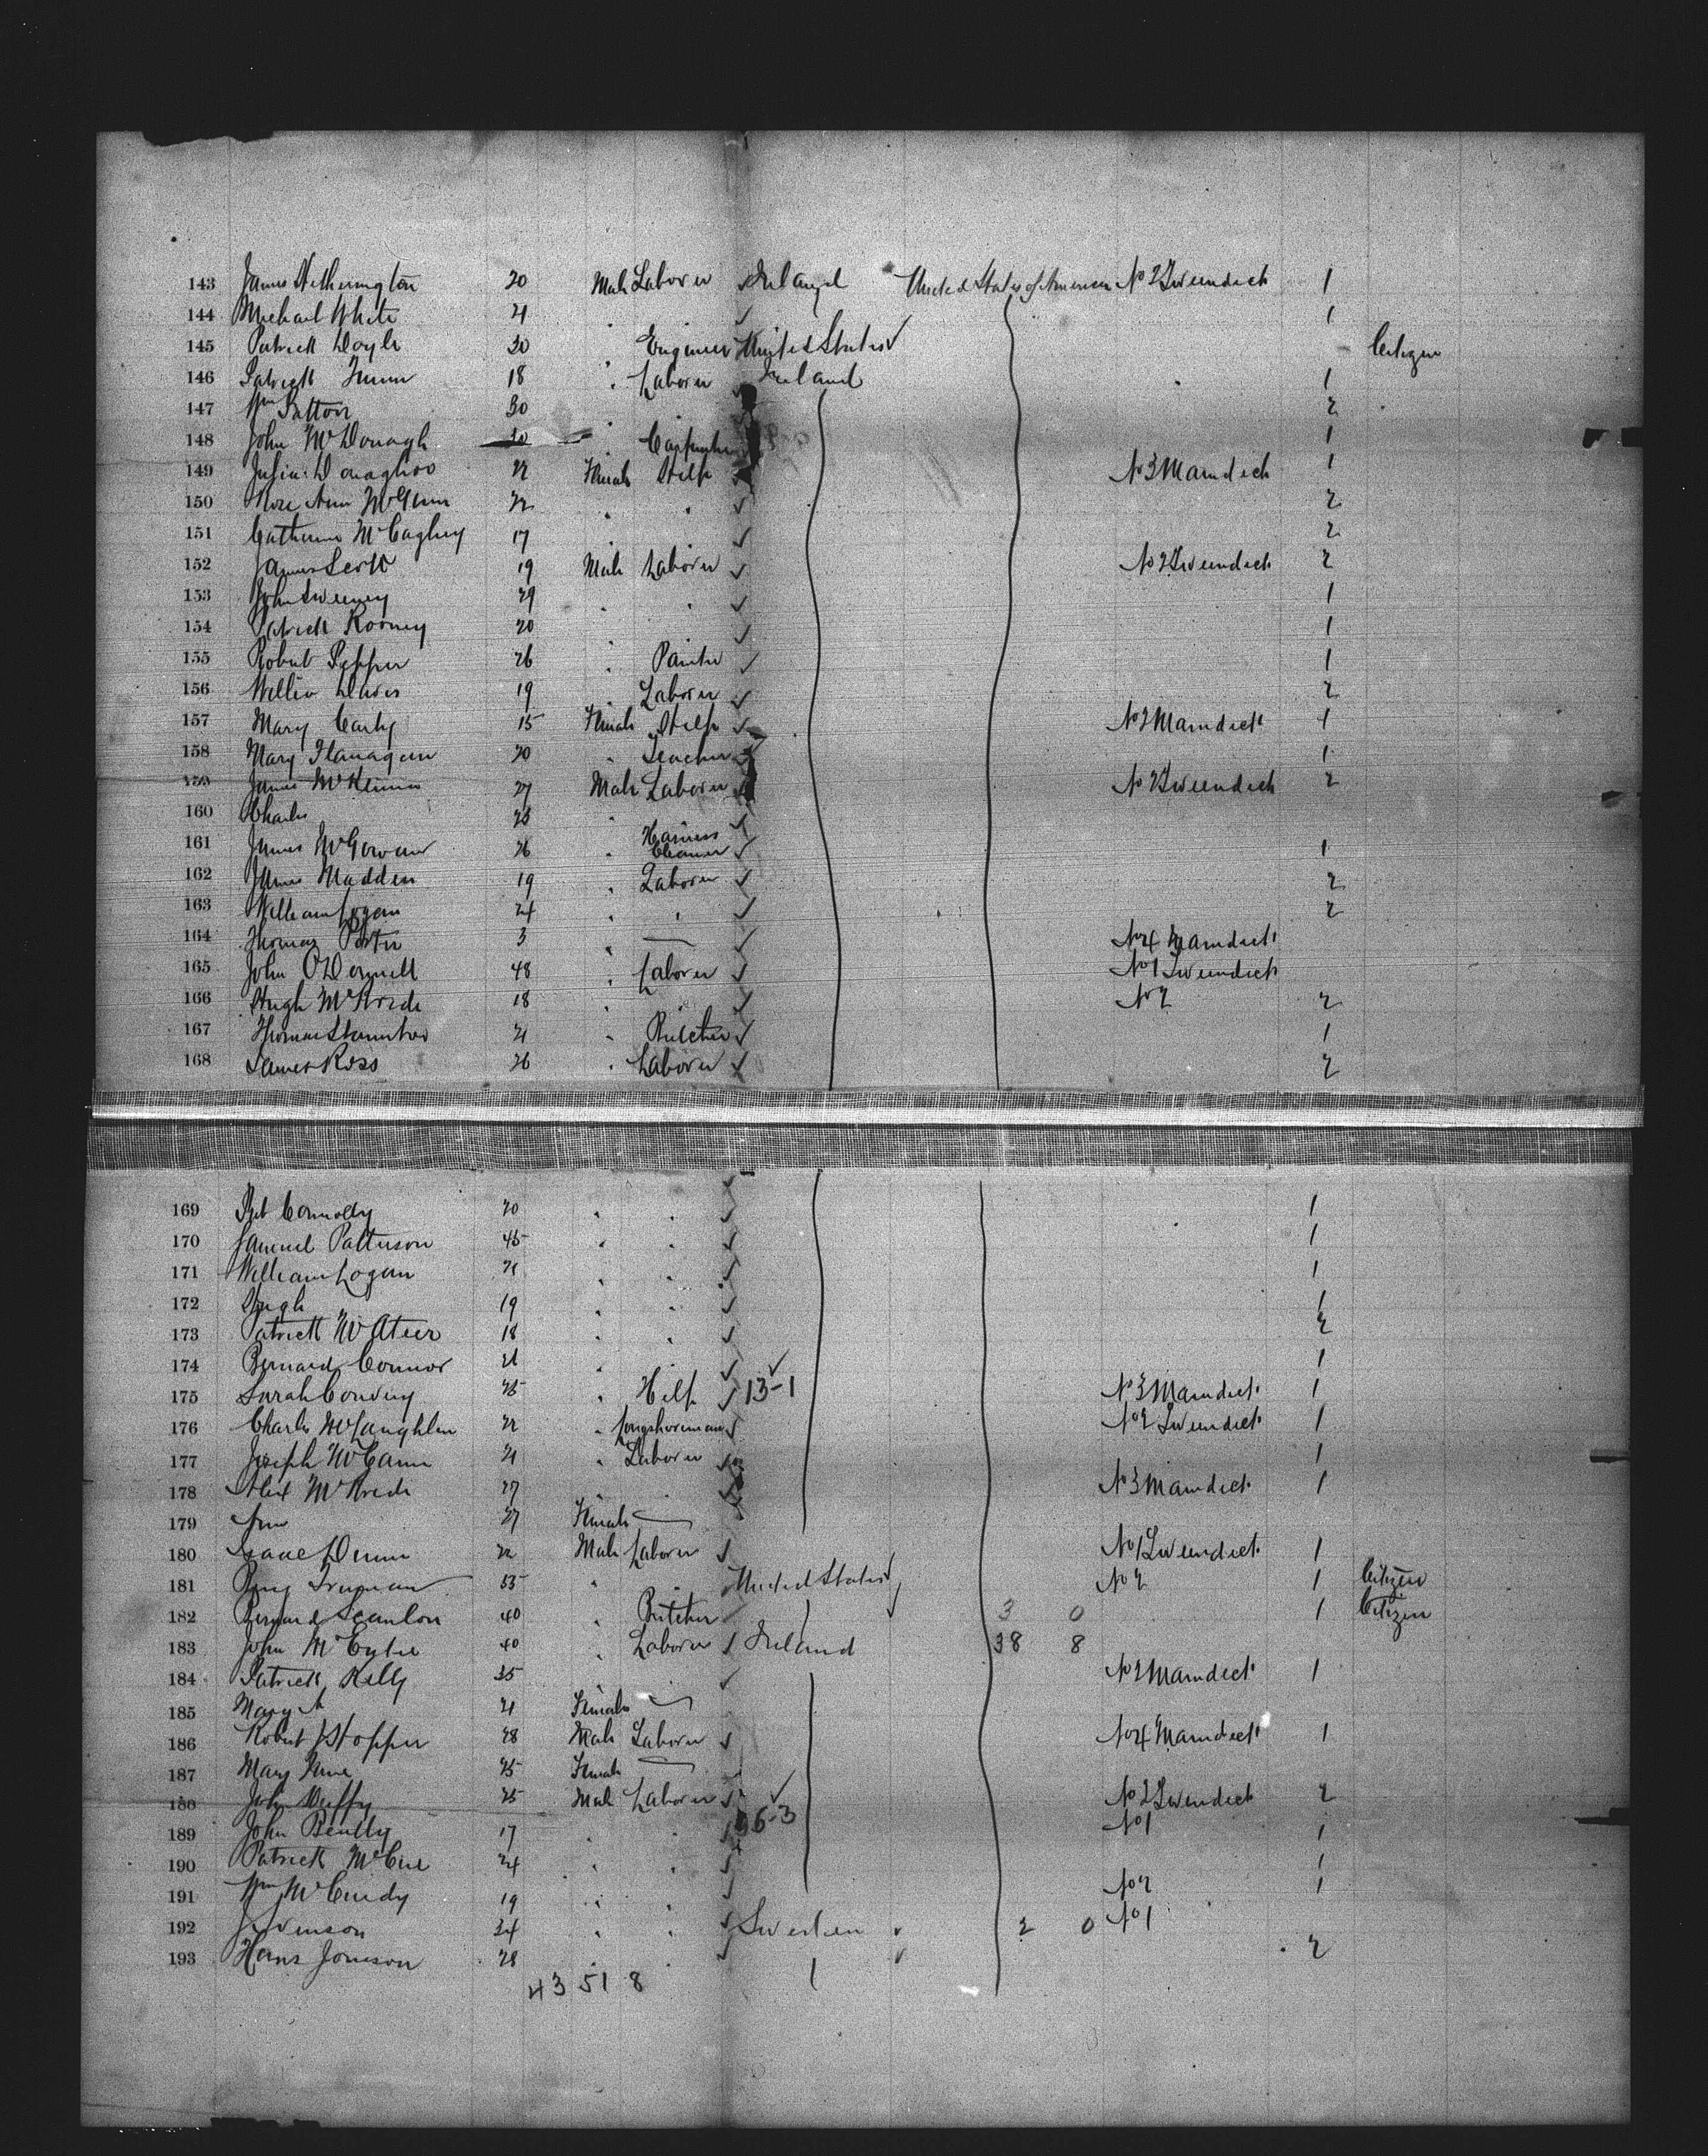 143 James Hetherington 20 Male Laborer Ireland United States of America No 2 Tweendeck 1
144 Michael White 21 " 1
145 Patrick Doyle 30 " Engineer United States Citizen
146 Patrick 18 " Laborer Ireland 1
147 Wm Patton 30 2
148 John McDonagh 20 " Carpenter 1
149 Julia Donaghoo 22 Female Help No 3 Maindeck 1
150 Rose Ann McGinn 22 " " 2
151 Catherine McCaghey 17 2
152 James Scott 19 Male Laborer No 2 Tweendeck 2
153 John Sweeney 29 " " 1
154 Patrick Rooney 20 1
155 Robert Pepper 26 " Painter 1
156 Davis 19 " Laborer 2
157 Mary Carty 15 Female Help No 2 Maindeck 1
158 Mary Flanagan 20 " Teacher 1
159 James McKenna 27 Male Laborer No 2 Tweendeck 2
160 Charles 23 "
161 James McGowan 26 " Harness Cleaner 1
162 James Madden 19 " Laborer 2
163 William Logan 24 " " 2
164 Thomas Porter 3 " — No 4 Maindeck
165 John O'Donnell 48 " Laborer No 1 Tweendeck
166 Hugh McBride 18 " " No 2 2
167 Thomas 21 " Butcher 1
168 James Ross 26 " Laborer 2
169 Pat Connolly 20 " " 1
170 Samuel Patterson 45 " " 1
171 William Logan 21 " " 1
172 Hugh 19 " " 1
173 Patrick McAteer 18 " " 2
174 Bernard Connor 21 " " 1
175 Sarah 25 " Help 13-1 No 3 Maindeck 1
176 Charles McLaughlin 22 " Longshoreman No 2 Tweendeck 1
177 Joseph McCann 21 " Laborer 1
178 Alex McBride 27 " " No 3 Maindeck 1
179 Ann 27 Female —
180 Isaac Dunn 22 Male Laborer No 1 Tweendeck 1
181 Truman 35 " " United States No 2 1 Citizen
182 Bernard Scanlon 40 " Butcher 3 0 1 Citizen
183 John 40 " Laborer Ireland 38 8
184 Patrick Kelly 35 " No 2 Maindeck 1
185 Mary A 21 Female —
186 Robert J Hopper 28 Male Laborer No 4 Maindeck 1
187 Mary Jane 25 Female —
188 John Duffy 25 Male Laborer No 2 Tweendeck 2
189 John 17 " " 36-3 No 1 1
190 Patrick McCue 24 " " 1
191 Wm McCurdy 19 " " No 2 1
192 J Svenson 24 " " Sweden 2 0 No 1
193 Hans Jonsson 28 " " 2
43 51 8